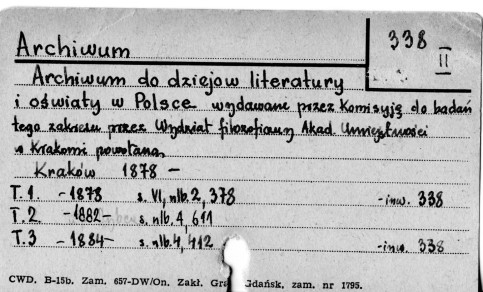 Archiwum
338
II
Archiwum do dziejów literatury
i oświaty w Polsce wydawane przez Komisyję do badań
tego zakresu przez Wydział filozoficzny Akad. Umiejętności
w Krakowi powołaną
Kraków 1878 -
T.1 - 1878 s. VI, nlb. 2, 378 - inw. 338
T.2 - 1882 - s. nlb. 4, 611
T.3 - 1884 - s. nlb. 4, 412 - inw. 338
CWD. B-15b. Zam. 657-DW/On. Zakł. Gdańsk, zam. nr 1795.